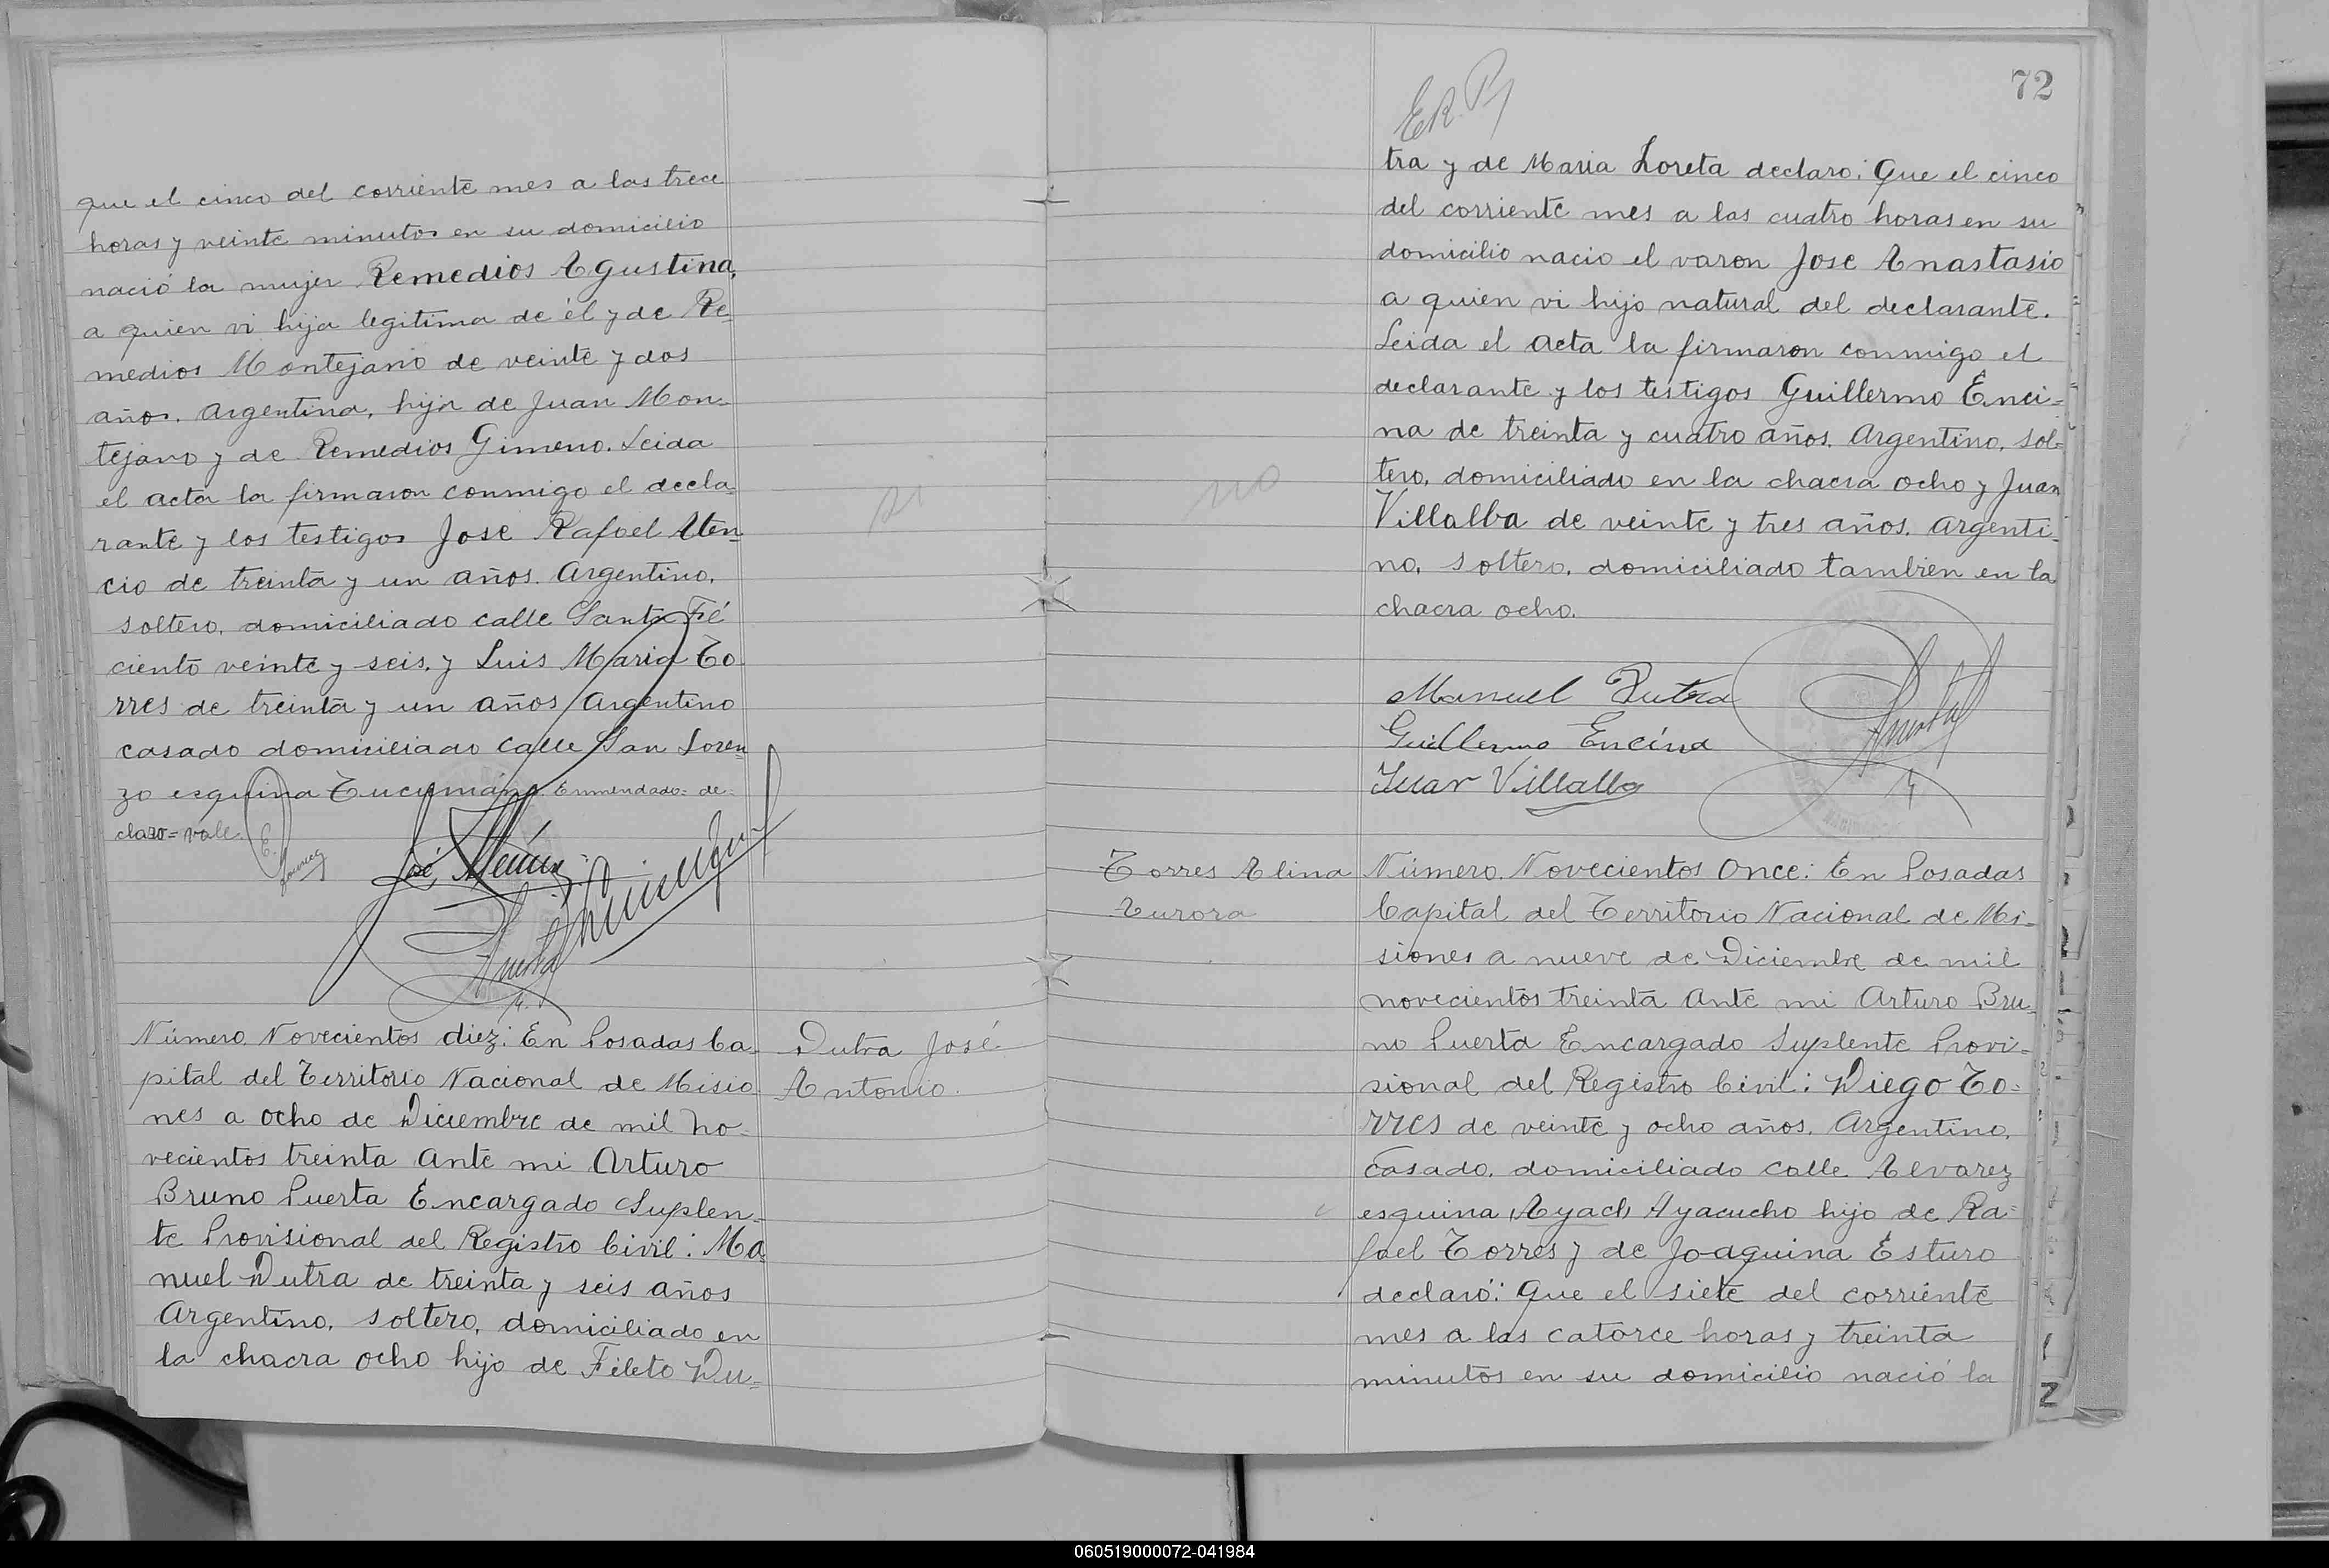 que el cinco del corriente mes a las trece
horas y veinte minutos en su domicilio
nació la mujer Remedios Agustina,
a quien vi hija legitima de él y de Re=
medios Montejano de veinte y dos
años. Argentina, hija de Juan Mon=
tejano y de Remedios Gimeno. Leida
el acta la firmaron conmigo el decla=
rante y los testigos Jose Rafael Aten
cio de treinta y un años. Argentino,
soltero, domiciliado calle Santa Fé
ciento veinte y seis. y Luis Maria To
rres de treinta y un años Argentino
casado domiciliado calle San Loren
zo esquina Tucumán. Enmendado= de=
claro= vale.
José
Puerta
Número Novecientos diez: En Posadas Ca=
pital del Territorio Nacional de Misio=
nes a ocho de Diciembre de mil no=
vecientos treinta ante mi Arturo
Bruno Puerta Encargado Suplen=
te Provisional del Registro Civil: Ma
nuel Dutra de treinta y seis años
Argentino, soltero, domiciliado en
la chacra ocho hijo de Fileto Du=
si
Dutra José
Antonio.
72
E.R.P
tra y de Maria Loreta declaro: Que el cinco
del corriente mes a las cuatro horas en su
domicilio nacio el varon Jose Anastasio
a quien vi hijo natural del declarante.
Leida el acta la firmaron conmigo el
declarante y los testigos Guillermo Enci=
na de treinta y cuatro años. Argentino, sol=
tero, domiciliado en la chacra ocho y Juan
Villalba de veinte y tres años. Argenti=
no, soltero, domiciliado tambien en la
chacra ocho.
no
Manuel Dutra
Guillermo Encina
Juan Villalba
Puerta
Torres Alina
Aurora
Número Novecientos Once: En Posadas
Capital del Territorio Nacional de Mi=
siones a nueve de Diciembre de mil
novecientos treinta ante mi Arturo Bru=
no Puerta Encargado Suplente Provi=
sional del Registro Civil: Diego To=
rres de veinte y ocho años. Argentino,
casado, domiciliado calle Alvarez
esquina Ayach Ayacucho hijo de Ra=
fael Torres y de Joaquina Esturo
declaró: Que el siete del corriente
mes a las catorce horas y treinta
minutos en su domicilio nació la
060519000072-041984